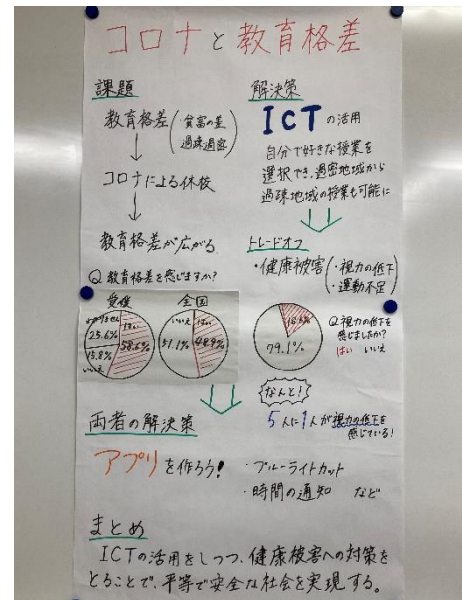 コロナと教育格差
課題
教育格差(・貧富の差
過疎過密)
↓
コロナによる休校
↓
教育格差が広がる
Q 教育格差を感じますか?
愛媛
全国
わかりません
25.6%
15.8%
いいえ
はい
58.6%
いいえ
51.1%
はい
48.9%
解決策
ICTの活用
自分で好きな授業を
選択でき、過密地域から
過疎地域の授業も可能に
トレードオフ
・健康被害(・視力の低下
・運動不足)
79.1%
Q 視力の低下を
感じましたか?
はい いいえ
なんと!
5人に1人が視力の低下を
感じている!
両者の解決策
アプリを作ろう!
・ブルーライトカット
・時間の通知 など
まとめ
ICTの活用をしつつ、健康被害への対策を
とることで、平等で安全な社会を実現する。